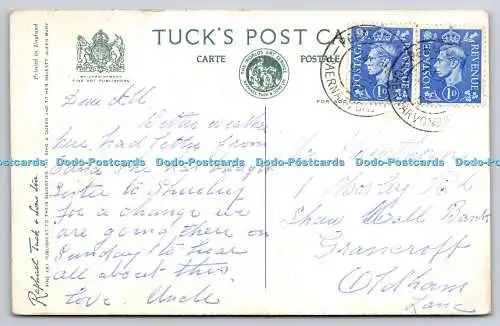 TUCK'S POST CARD
CARTE POSTALE
BY APPOINTMENT
FINE ART PUBLISHERS
THE WORLD'S ART SERVICE
Printed in England
Raphael Tuck & Sons Ltd
FINE ART PUBLISHERS TO THEIR MAJESTIES THE KING & QUEEN AND TO HER MAJESTY QUEEN MARY
FOR
POSTAGE REVENUE
1D
POSTAGE REVENUE
1D
CAERNARVON
Dear All
Better weather
here, had letter from
she has
sister to Shirley
for a change we
are going there on
Sunday to hear
all about this
love. Uncle
1 Morley Rd
Shaw Hall Bank
Grancroft
Oldham
Lanc
Dodo-Postcards Dodo-Postcards Dodo-Postcards Dodo-Postcards Dodo-Postcards Dodo-Postcards